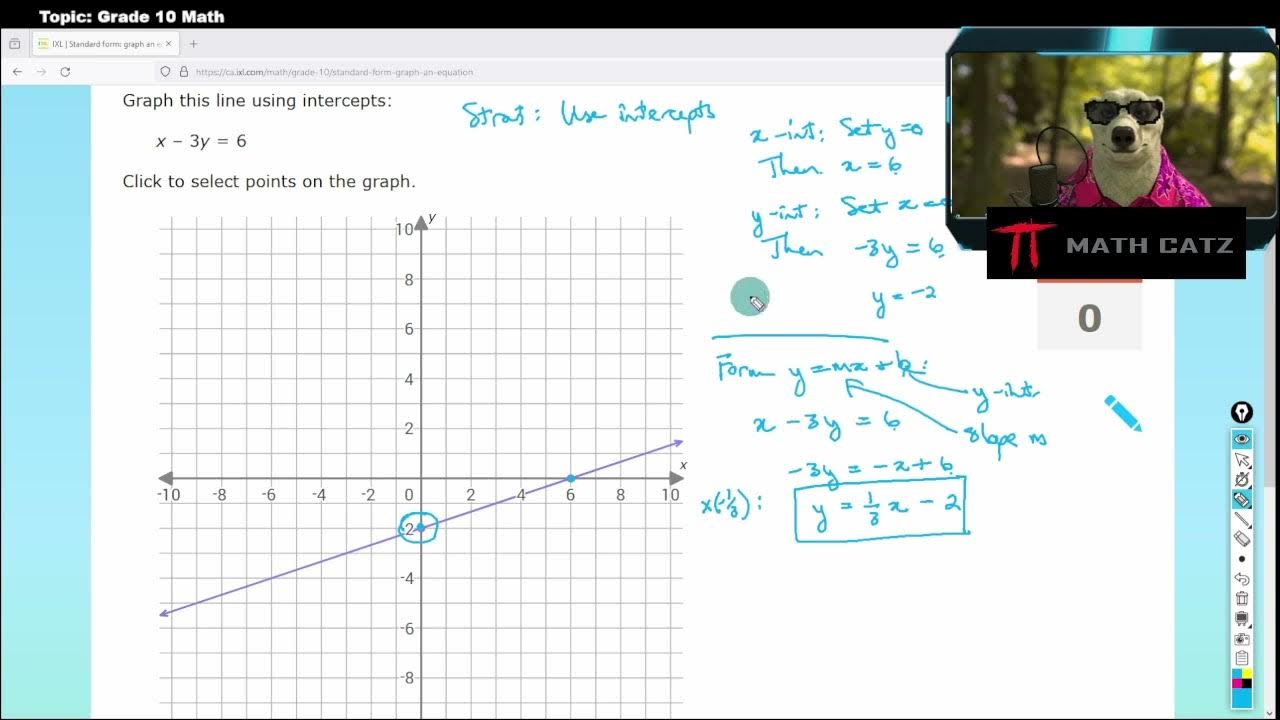 Topic: Grade 10 Math
IXL | Standard form: graph an e
https://ca.ixl.com/math/grade-10/standard-form-graph-an-equation
Graph this line using intercepts:
x – 3y = 6
Click to select points on the graph.
Strat: Use intercepts
x-int: Set y=0
Then x = 6
y-int: Set x =
Then -3y = 6
y = -2
MATH CATZ
0
Form y = mx + b:
y-int
x - 3y = 6
slope m
-3y = -x + 6
x(-1/3): y = 1/3 x - 2
y
10
8
6
4
2
x
-10 -8 -6 -4 -2 0 2 4 6 8 10
-2
-4
-6
-8